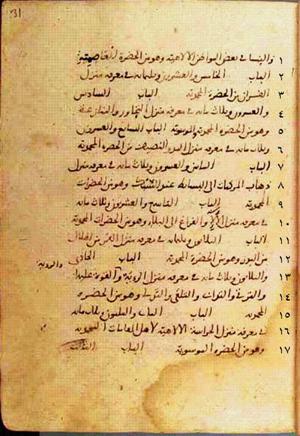 31
والنسا في بعض المواطن الالاهية وهو من الحضرة العاصمية ١
الباب الخامس والعشرون وثلثمائة في معرفة منزل ٢
القرآن من الحضرة المحمدية الباب السادس ٣
والعشرون وثلاث مائة في معرفة منزل التحاور والمنازعة ٤
وهو من الحضرة المحمدية الموسوية الباب السابع والعشرون ٥
وثلاث مائة في معرفة منزل المد والنصيف من الحضرة المحمدية ٦
الباب الثامن والعشرون وثلاث مائة في معرفة منزل ٧
ذهاب المركبات الى البسائط عند السبك وهو من الحضرات ٨
المحمدية الباب التاسع والعشرون وثلاث مائة ٩
في معرفة منزل الآلاء والفراغ الى البلاء وهو من الحضرات المحمدية ١٠
الباب الثلاثون وثلثمائة في معرفة منزل القمر من الهلال ١١
من البدر وهو من الحضرة المحمدية الباب الحادي ١٢
والثلاثون وثلاث مائة في معرفة منزل الرؤية والقوة عليها ١٣
والرؤية
والترقي والتداني والتلقي والتدلي وهو من الحضرة ١٤
المحمدية الباب الثاني والثلاثون وثلاث مائة ١٥
في معرفة منزل الحراسة الالاهية لاهل المقامات المحمدية ١٦
وهو من الحضرة الموسوية الباب الثالث ١٧